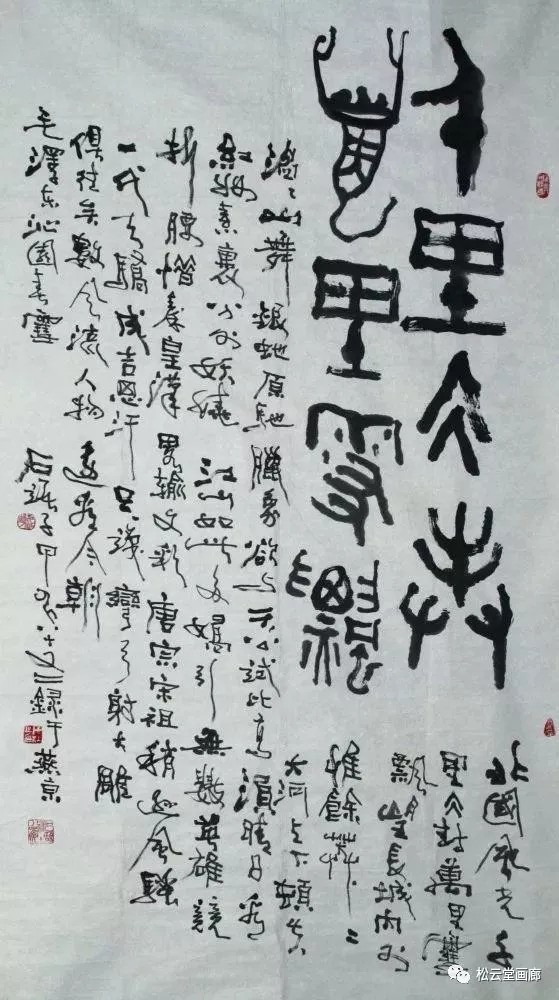 千里仌封
萬里雪飄
北國風光千
里仌封萬里雪
飄望長城內外
惟餘莽々
大河上下頓失
滔々山舞銀蛇原馳臘象欲与天公試比高須晴日看
紅妝素裹分外妖嬈江山如此多嬌引無數英雄競
折腰惜秦皇漢武略輸文彩唐宗宋祖稍遜風騷
一代天驕成吉思汗只識彎弓射大雕
俱往矣數風流人物還看今朝
毛澤東沁園春雪
石 子甲 八十又二錄于燕京
松云堂画廊